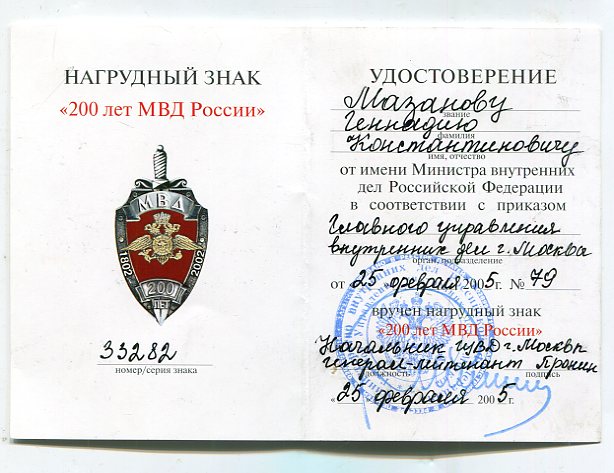 НАГРУДНЫЙ ЗНАК
«200 лет МВД России»
МВД
1802
2002
200
ЛЕТ
33282
номер/серия знака
УДОСТОВЕРЕНИЕ
Мазанову
звание
Геннадию
фамилия
Константиновичу
имя, отчество
от имени Министра внутренних
дел Российской Федерации
в соответствии с приказом
Главного управления
внутренних дел г. Москва
орган, подразделение
от «25» февраля 2005г. № 79
вручен нагрудный знак
«200 лет МВД России»
Начальник ГУВД г. Москвы
генерал-лейтенант Пронин
должность подпись
«25» февраля 2005г.